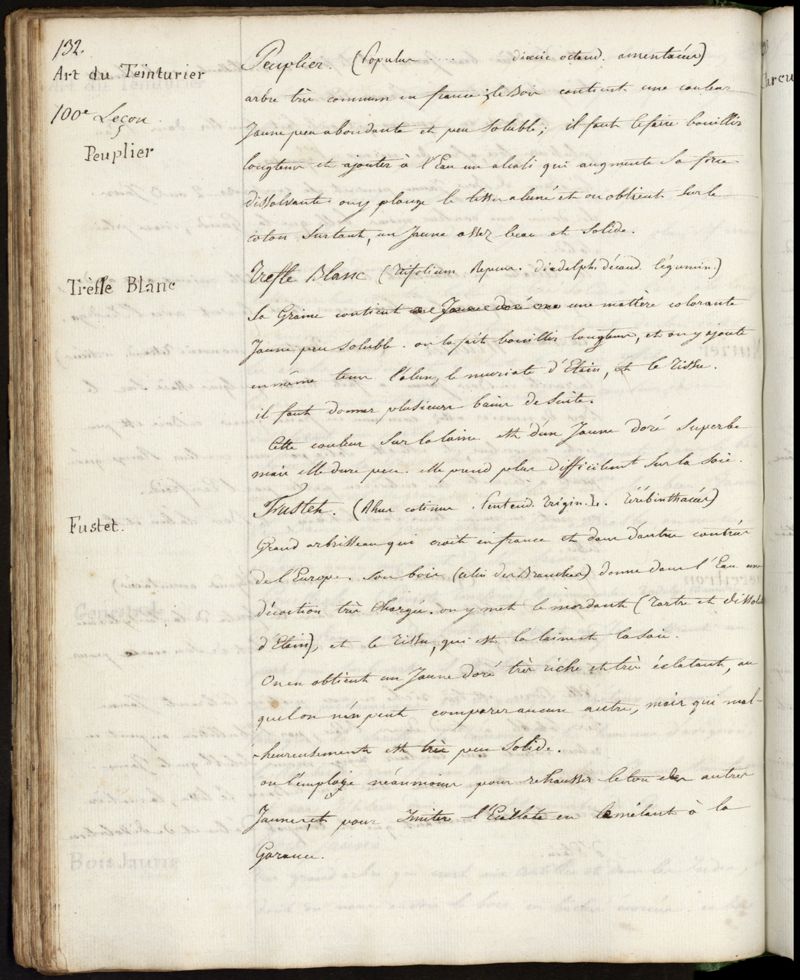 132.
Art du Teinturier
100e Leçon
Peuplier
Peuplier. (Populus diœcie octand. amentacées)
arbre très commun en france; le Bois contient une couleur
Jaune peu abondante et peu soluble; il faut le faire bouillir
longtems et ajouter à l'Eau un alcali qui augmente sa force
dissolvante on y plonge le tissu aluné et on obtient sur le
coton surtout, un Jaune assez beau et solide.
Trèfle Blanc
Trefle Blanc (Trifolium Repens. diadelph. décand. légumin.)
Sa Graine contient une matière colorante
Jaune peu soluble. on la fait bouillir longtems, et on y ajoute
en même tems l'alun, le muriate d'Etain, et le tissu.
il faut donner plusieurs bains de suite.
Cette couleur sur la laine est d'un Jaune doré superbe
mais elle dure peu. elle prend plus difficilement sur la soie.
Fustet.
Fustet. (Rhus cotinus. Pentand. trigin. Térébinthacées)
Grand arbrisseau qui croit en france et dans d'autres contrées
de l'Europe. son bois (celui des Branches) donne dans l'Eau une
décoction très chargée. on y met le mordant (Tartre et dissol.
d'Etain), et le tissu, qui est la laine et la soie.
On en obtient un Jaune doré très riche et très éclatant, au
quel on n'en peut comparer aucun autre, mais qui mal-
heureusement est très peu solide.
on l'employe néanmoins pour rehausser le ton des autres
Jaunes, et pour Imiter l'Ecarlate en le mêlant à la
Garance.